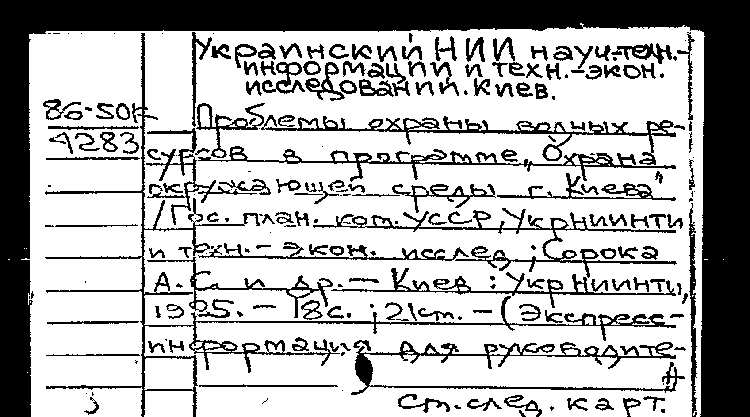 Украинский НИИ науч.-техн.-
информации и техн.-экон.
исследований. Киев.
86-50К
4283
Проблемы охраны водных ре-
сурсов в программе „Охрана
окружающей среды г. Киева"
/Гос. план. ком. УССР, Укрниинти
и техн.- экон. исслед.; Сорока
А.С. и др. — Киев : Укрниинти,
1985. — 18с. ; 21см. — (Экспресс-
информация для руководите-
См. след. карт.